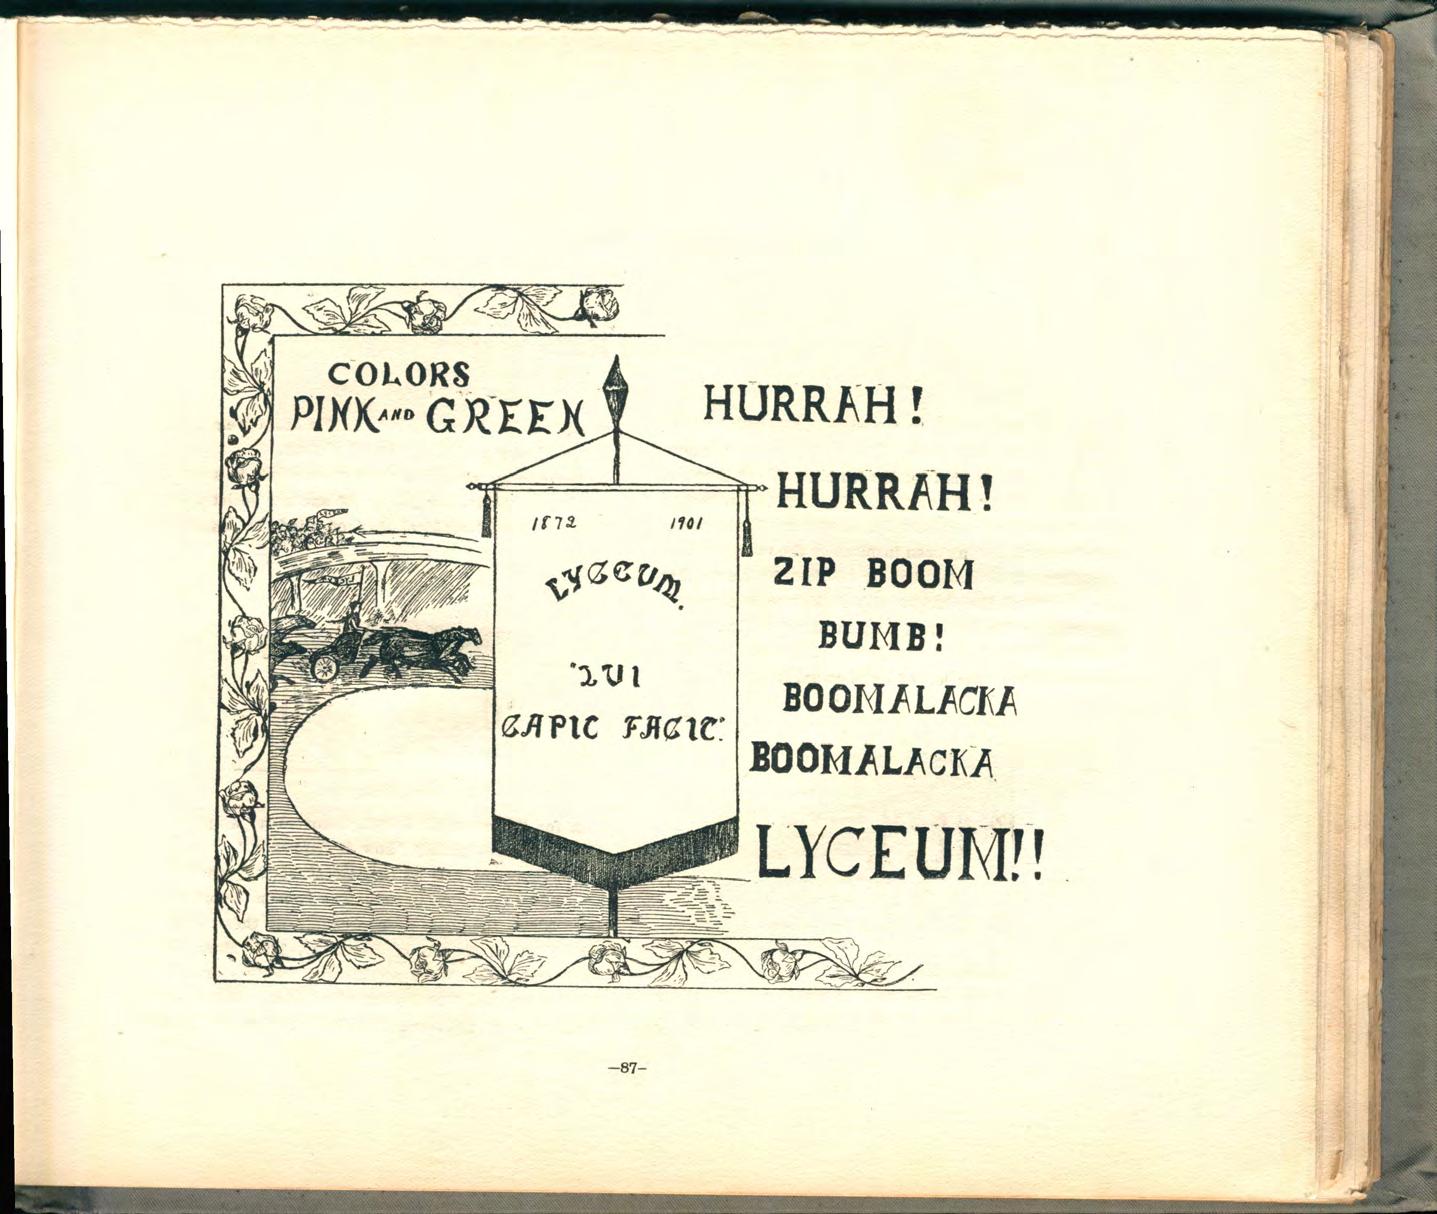 COLORS
PINK AND GREEN
1872 1901
LYCEUM.
"QUI
CAPIT FACIT."
HURRAH!
HURRAH!
ZIP BOOM
BUMB!
BOOMALACKA
BOOMALACKA
LYCEUM!!
—87—